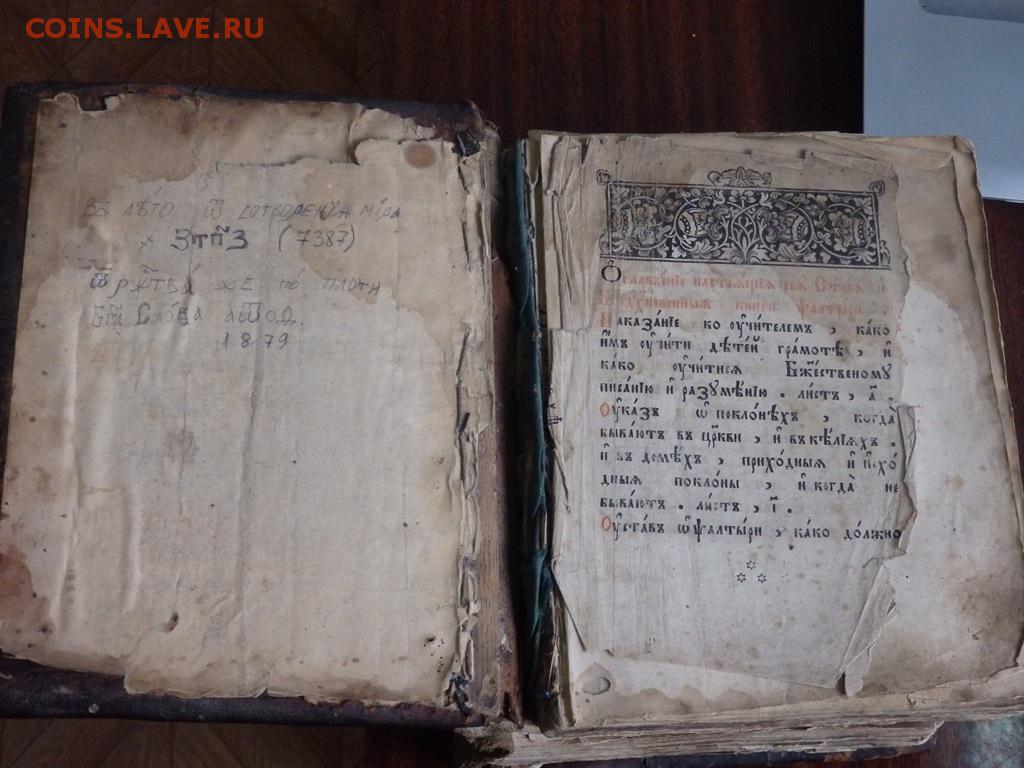 COINS.LAVE.RU
В лѣто ѿ сотворенїѧ мїра
҂ЗТПЗ (7387)
Ѿ рж҃тва же по плоти
Бг҃а Слова
1879
Ѻглавле́нїе настоѧ́щїѧ сеѧ̀ ст҃ы́ѧ и҆
Бг҃одꙋхнове́нныѧ кни́ги ѱалты́ри .
Наказа́нїе ко ᲂу҆чи́телемъ , ка́ко
и҆̀мъ ᲂу҆чи́ти дѣте́й гра́мотѣ , и҆
ка́ко ᲂу҆чи́тисѧ Бж҃е́ственомꙋ
писа́нїю и҆ разꙋмѣ́нїю . ли́стъ , а҃ .
Оу҆ка́зъ ѡ҆ покло́нѣхъ , когда̀
быва́ютъ в цр҃кви , и҆ в ке́лїѧхъ .
и҆ в домѣ́хъ , прихо́дныѧ и҆ и҆схо́
дныѧ покло́ны , и҆ когда̀ не
быва́ютъ . ли́стъ , і҃ .
Оу҆ста́въ ѡ҆ ѱалты́ри , ка́ко до́лжно